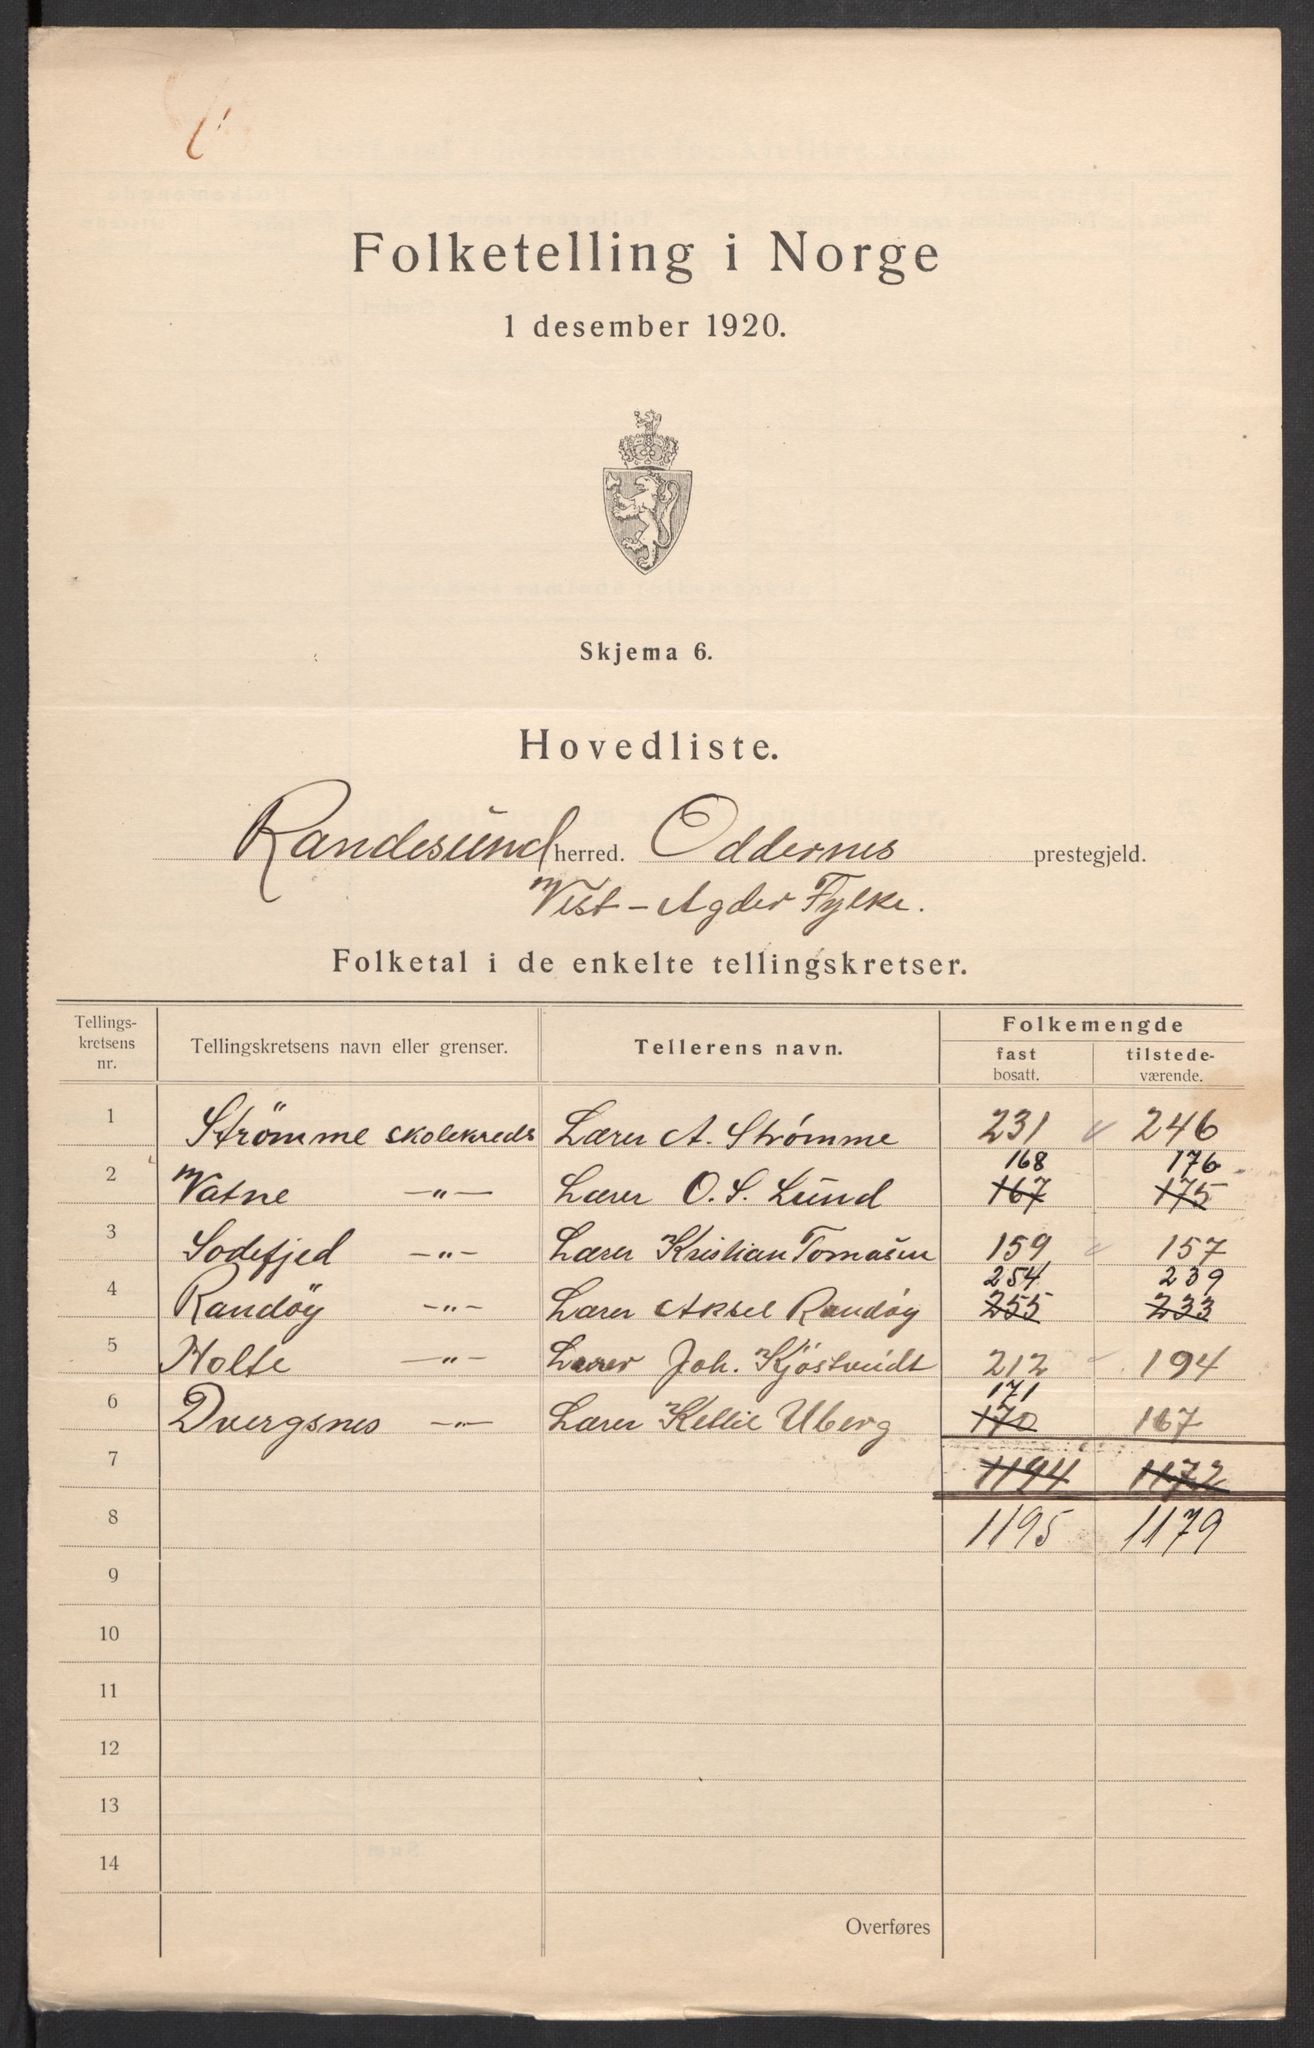 Folketelling i Norge
1 desember 1920.
Skjema 6.
Hovedliste.
Randesund herred. Oddernes prestegjeld.
Vest-Agder Fylke.
Folketal i de enkelte tellingskretser.
Tellings-kretsens nr. Tellingskretsens navn eller grenser. Tellerens navn. Folkemengde
fast bosatt. tilstede-værende.
1 Strömme skolekreds Lærer A. Strømme 231 246
168 176
2 Vatne —"— Lærer O. S. Lund 167 175
3 Sodefjed —"— Lærer Kristian Tomasen 159 157
254 239
4 Randöy —"— Lærer Aksel Randöy 255 233
5 Holte —"— Lærer Joh. Kjöstvedt 212 194
171
6 Dvergsnes —"— Lærer Kellil Uberg 170 167
7 1194 1172
8 1195 1179
9
10
11
12
13
14
Overføres